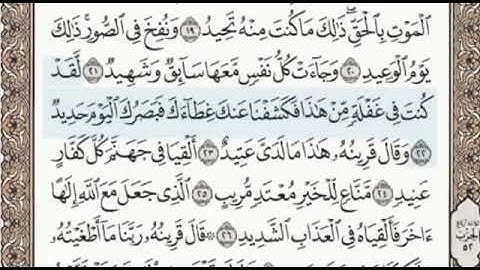 الْمَوْتِ بِالْحَقِّ ۖ ذَٰلِكَ مَا كُنتَ مِنْهُ تَحِيدُ ۝١٩ وَنُفِخَ فِي الصُّورِ ۚ ذَٰلِكَ
يَوْمُ الْوَعِيدِ ۝٢٠ وَجَاءَتْ كُلُّ نَفْسٍ مَّعَهَا سَائِقٌ وَشَهِيدٌ ۝٢١ لَّقَدْ
كُنتَ فِي غَفْلَةٍ مِّنْ هَٰذَا فَكَشَفْنَا عَنكَ غِطَاءَكَ فَبَصَرُكَ الْيَوْمَ حَدِيدٌ
۝٢٢ وَقَالَ قَرِينُهُ هَٰذَا مَا لَدَيَّ عَتِيدٌ ۝٢٣ أَلْقِيَا فِي جَهَنَّمَ كُلَّ كَفَّارٍ
عَنِيدٍ ۝٢٤ مَّنَّاعٍ لِّلْخَيْرِ مُعْتَدٍ مُّرِيبٍ ۝٢٥ الَّذِي جَعَلَ مَعَ اللَّهِ إِلَٰهًا
ءَاخَرَ فَأَلْقِيَاهُ فِي الْعَذَابِ الشَّدِيدِ ۝٢٦ ۞ قَالَ قَرِينُهُ رَبَّنَا مَا أَطْغَيْتُهُ
الحزب
٥٢